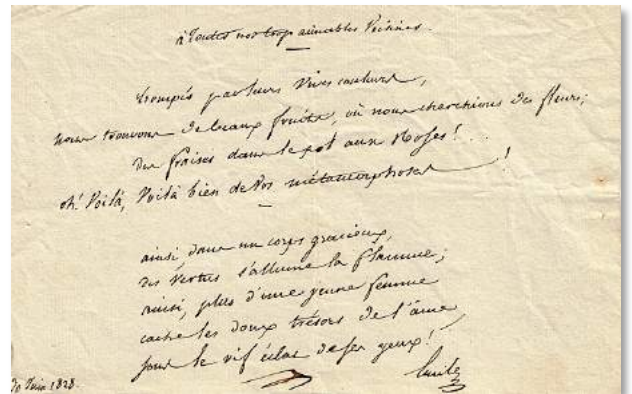 à Toutes nos trop aimables Voisines.
trompés par leurs vives couleurs,
nous trouvons de beaux fruits, où nous cherchions des fleurs;
des fraises dans le pot aux Roses!...
oh! Voilà, Voilà bien de Vos métamorphoses!
ainsi, dans un corps gracieux,
des Vertus s'allume la flamme;
ainsi, plus d'une jeune femme
cache les doux trésors de l'âme
sous le vif éclat de ses yeux!
20 Juin 1828.